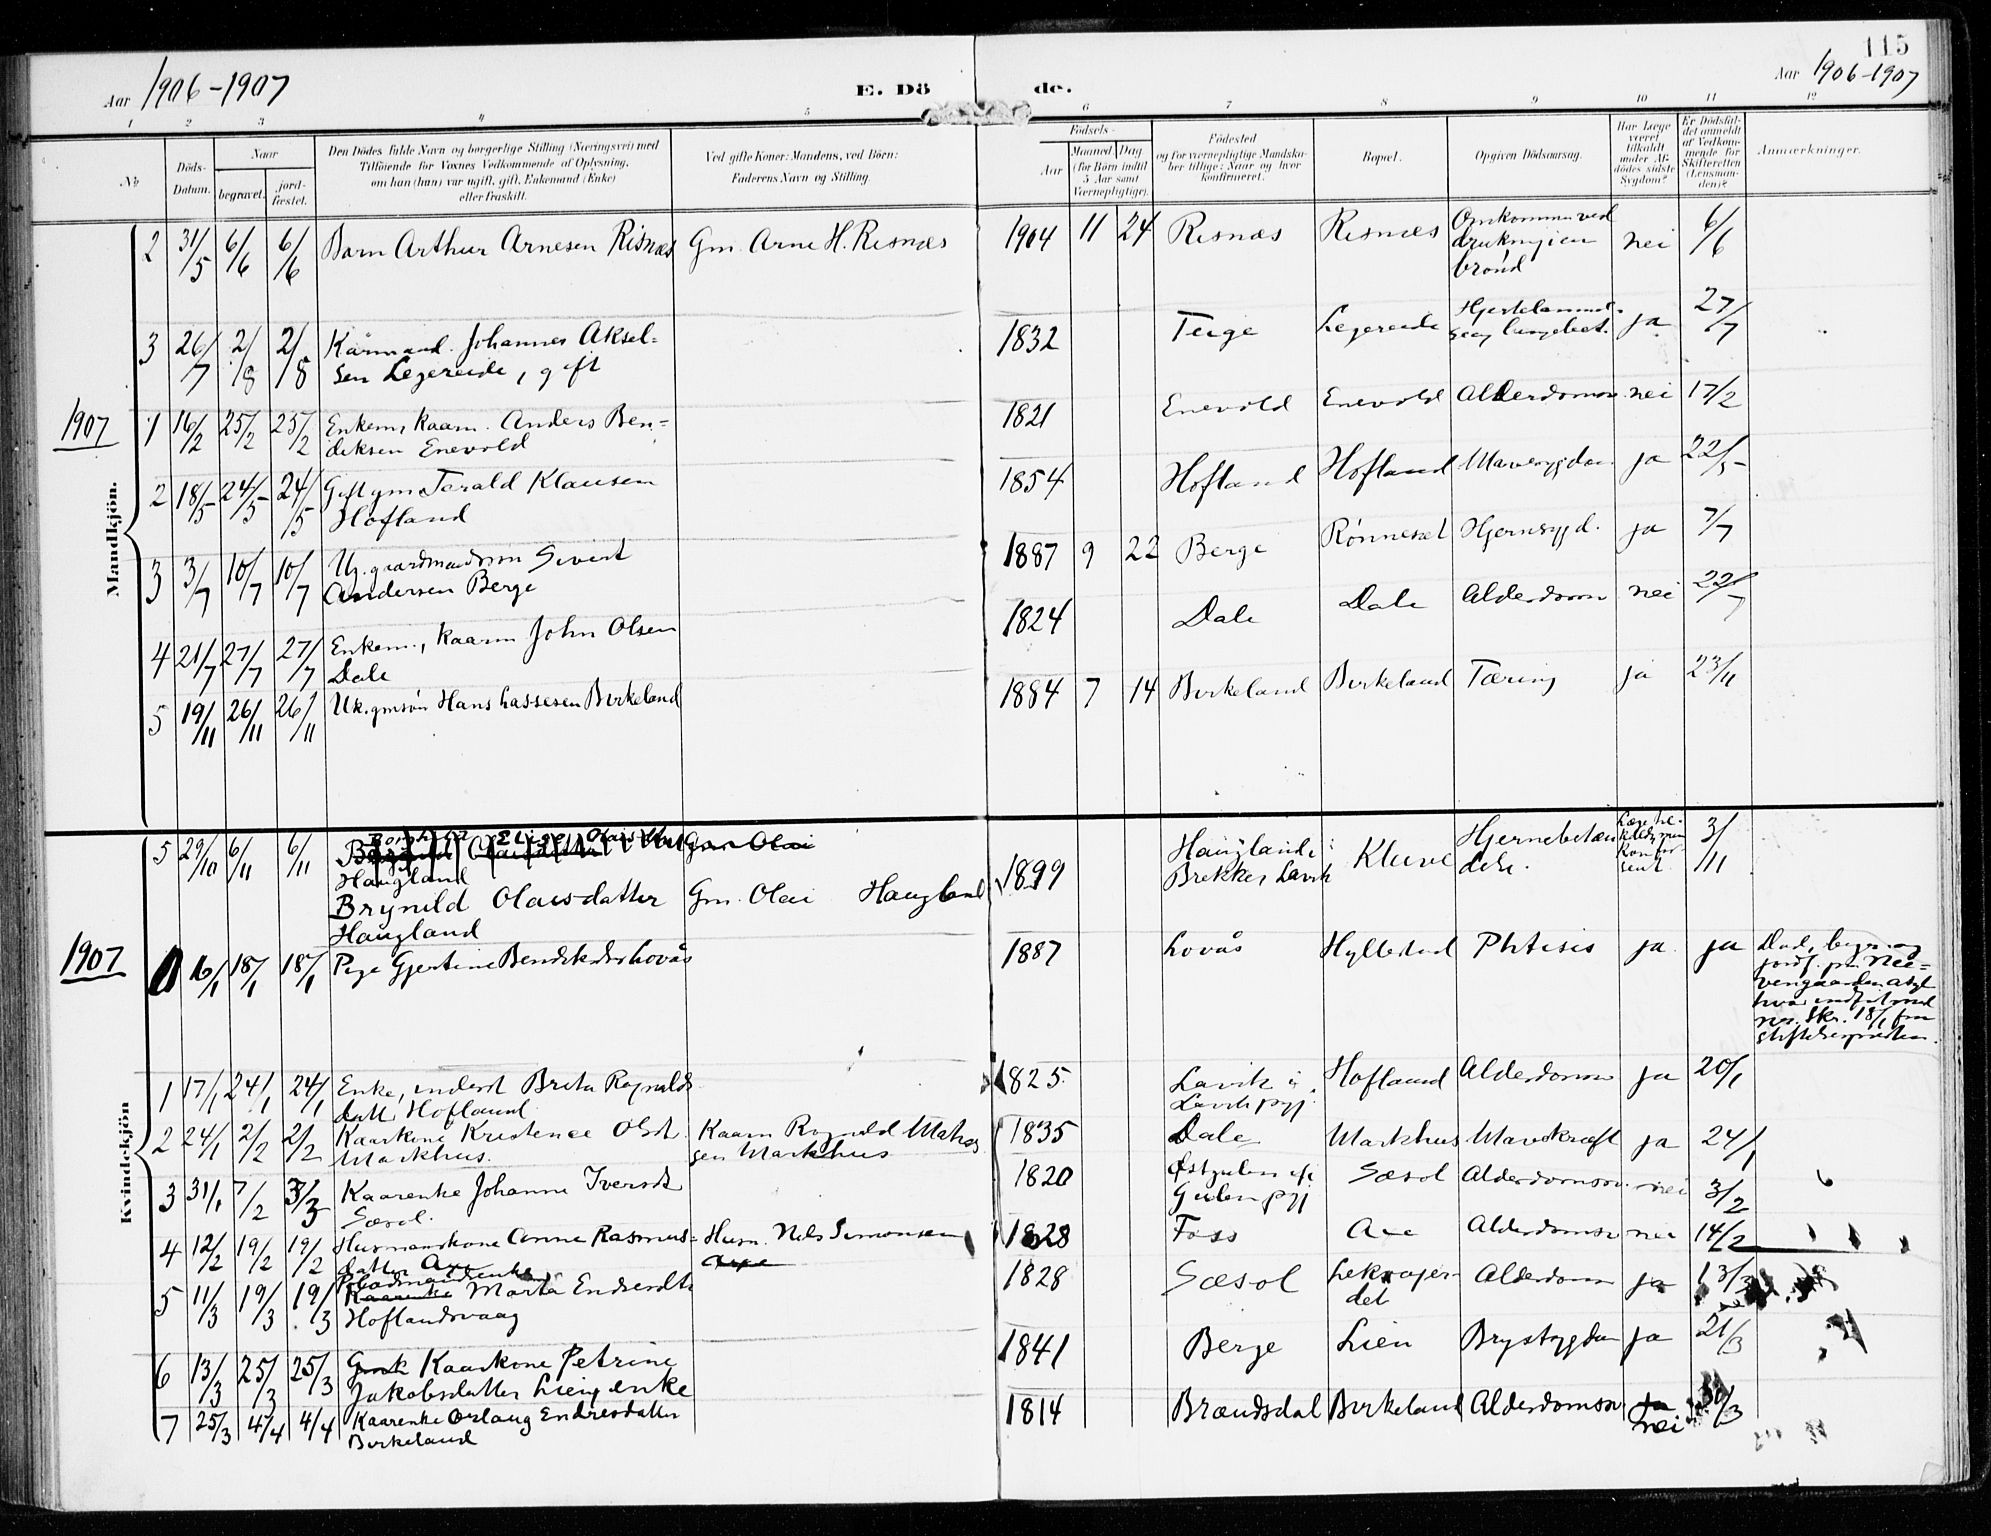 115
Aar 1906-1907
E. Dö de.
Aar 1906-1907
1 2 3 4 5 6 7 8 9 10 11 12
No
Döds-
Datum.
Naar
begravet.
jord-
fæstet.
Den Dödes fulde Navn og borgerlige Stilling (Næringsvei) med
Tilföiende for Voxnes Vedkommende af Oplysning,
om han (hun) var ugift, gift, Enkemand (Enke)
eller fraskilt.
Ved gifte Koner: Mandens, ved Börn:
Faderens Navn og Stilling.
Födsels-
Aar
Maaned. Dag.
(for Börn indtil
5 Aar samt
Værnepligtige).
Födested
og for værnepligtige Mandska-
ber tillige: Naar og hvor
konfirmeret.
Bopæl.
Opgiven Dödsaarsag.
Har Læge
været
tilkaldt
under Af-
dödes sidste
Sygdom?
Er Dödsfal-
det anmeldt
af Vedkom-
mende for
Skifteretten
(Lensman-
den)?
Anmærkninger.
Mandkjön.
2 31/5 6/6 6/6 Barn Arthur Arnesen Risnæs Gm. Arne H. Risnæs 1904 11 24 Risnæs Risnæs Omkommen ved nei 6/6
brönd
3 26/7 2/8 2/8 Kårmand. Johannes Aksel=
sen Legereide, gift
1832 Teige Legereide ja 27/7
1907
1 16/2 25/2 25/2 Enkem, kaarm. Anders Ben=
diksen Enevold
1821 Enevold Enevold Alderdomssv. nei 17/2
2 18/5 24/5 24/5 Gift gm Terald Klausen
Hofland
1854 Hofland Hofland Mavesygdom ja 22/5
3 3/7 10/7 10/7 Ug. gaardmandssøn Sivert
Andersen Berge
1887 9 22 Berge Rönneset Hjernesygd. ja 7/7
4 21/7 27/7 27/7 Enkem., kaarm John Olsen
Dale
1824 Dale Dale Alderdom nei 22/7
5 19/11 26/11 26/11 Uk. gmsøn Hans Lassesen Birkeland 1884 7 14 Birkeland Birkeland Tæring ja 23/11
Kvindekjön
5 29/10 6/11 6/11 Gm Olai
Haugland
Brynild Olaisdatter Gm. Olai Haugland
Haugland
1899 Haugland i
Brekke, Lavik
Kluve Hjernebetæn
delse.
3/11
1907
16/1 18/1 18/1 Pige Gjertine Bendiksdr Lovås 1887 Lovås Hyllestad Phtisis ja ja Död, begr. og
jordf. på Nee=
vengaarden asyl
hvor indsat med
18/1 fra
1 17/1 24/1 24/1 Enke, inderst Brita Rognalds
datter Hofland.
1825 Lavik i
Lavik pgj.
Hofland Alderdom ja 20/1
2 24/1 2/2 2/2 Kaarkone Kristence Olsdt.
Markhus.
Kaarm Rognald Mathis
sen Markhus
1835 Dale Markhus Mavekræft ja 24/1
3 31/1 7/2 3/3 Kaarenke Johanne Iversdt
Sæsol.
1820 Østgulen i
Gulen pgj
Sæsol Alderdomssv. nei 3/2
4 12/2 19/2 19/2 Husmandskone Anne Rasmus=
datter Axe
Husm. Nils Simonsen
Axe
1828 Foss Axe Alderdomssv nei 14/2
5 11/3 19/3 19/3 Pladsmandsenke
Kaarenke Marta Endresdtr
Hoflandsvaag
1828 Sæsol Alderdom ja 13/3
6 13/3 25/3 25/3 Gmk Kaarkone Petrine
Jakobsdatter Lien, enke
1841 Berge Lien Brystsygdom ja 21/3
7 25/3 4/4 4/4 Kaarenke Orlaug Endresdatter
Birkeland
1814 Brandsdal Birkeland Alderdomssv ja
nei
30/3